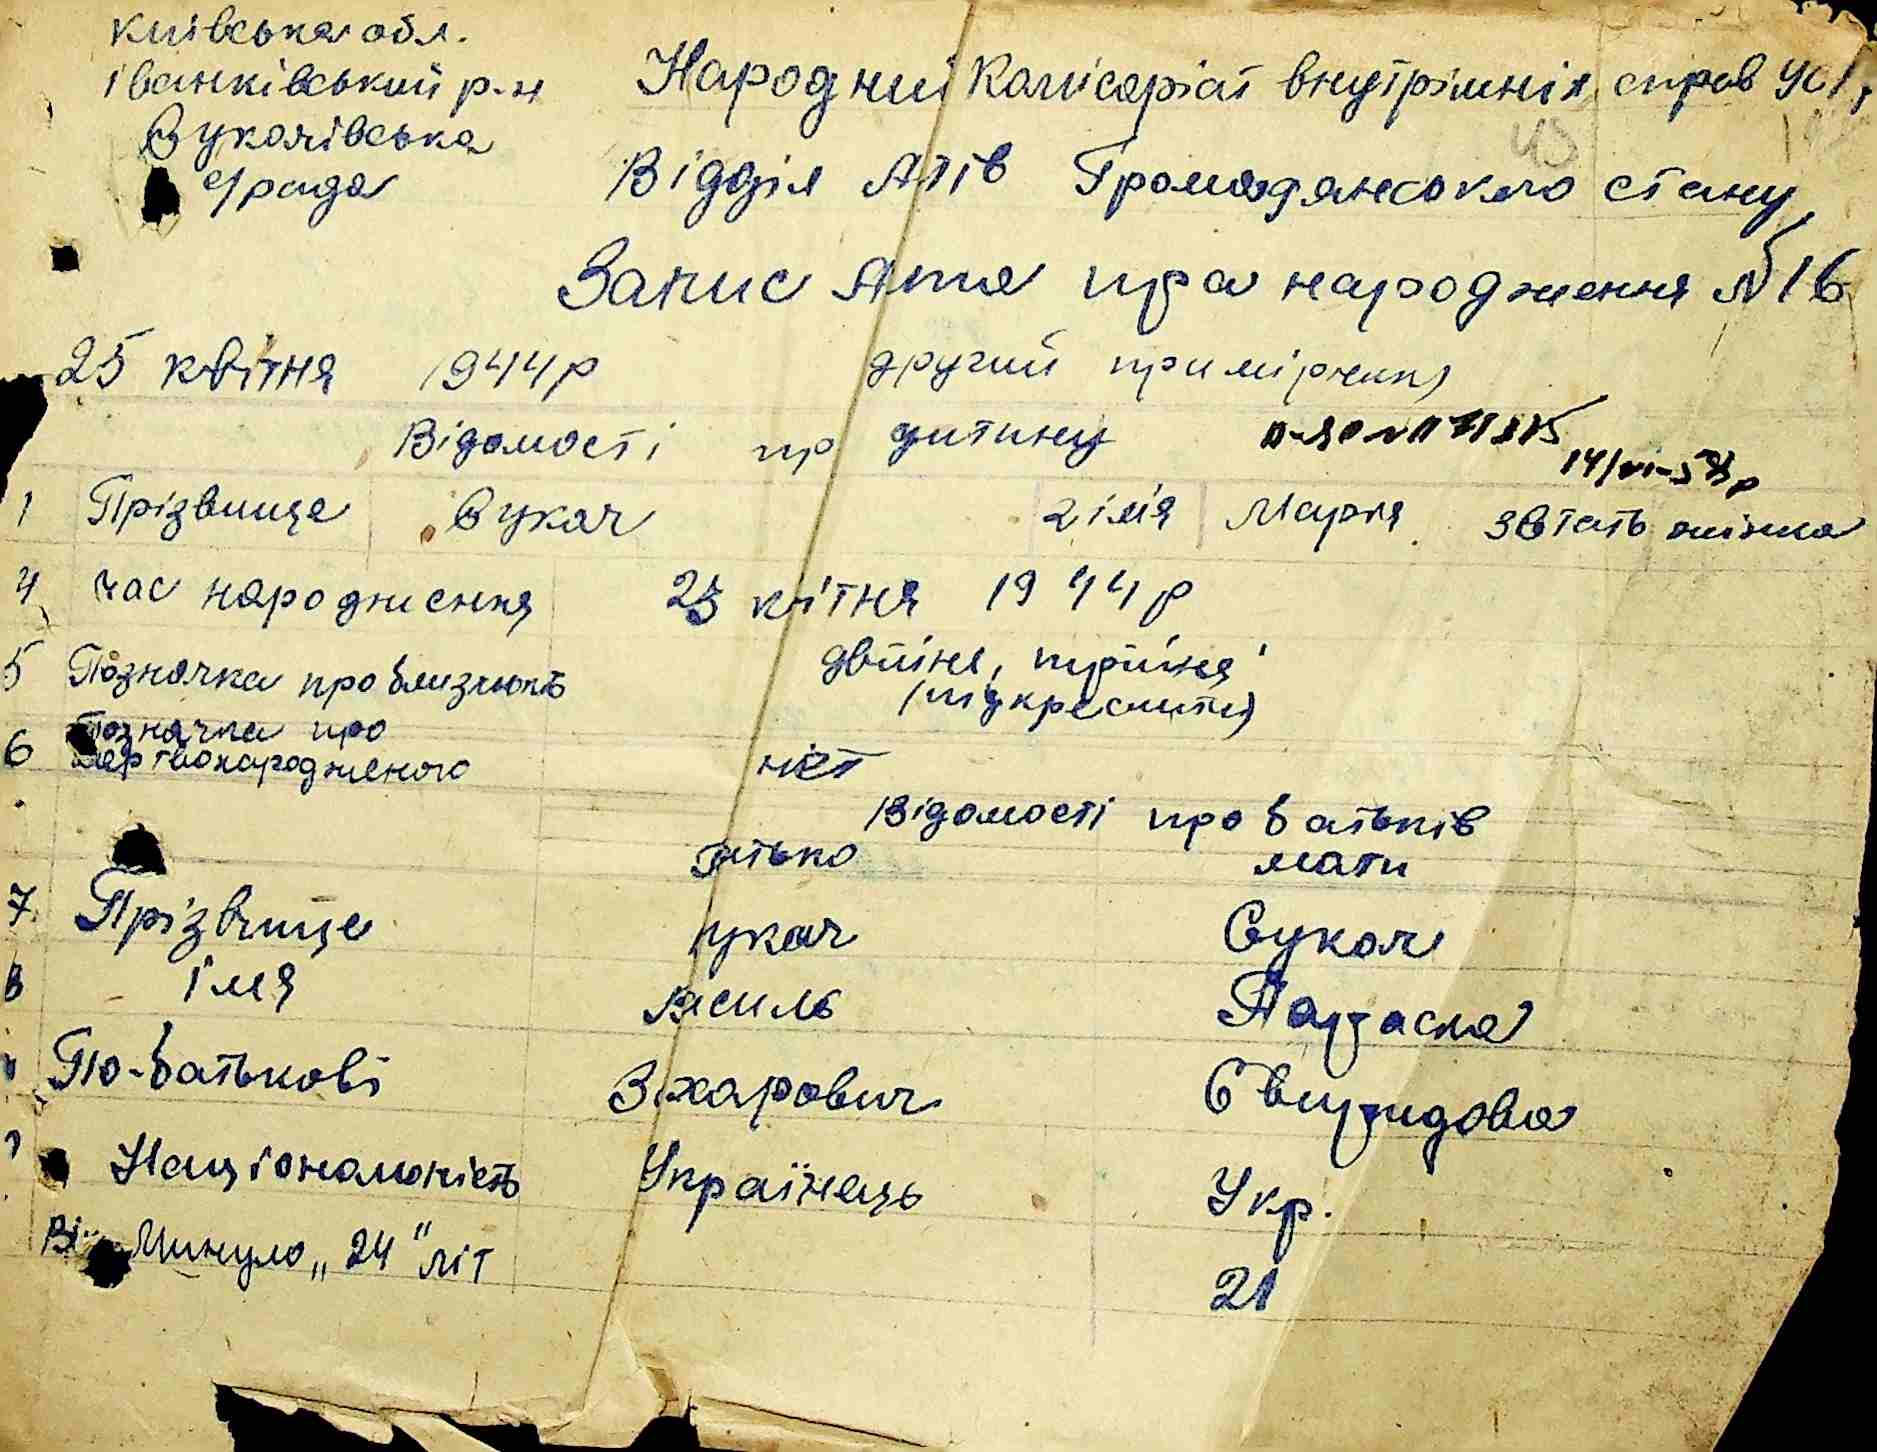 Київська обл.
Іванківський р-н
Сукачівська
с/рада
Народний Комісаріат внутрішніх справ УСР
Відділ Актів Громадянського стану
Запис Акта про народження №16
25 квітня 1944р другий примірник
Відомості пр дитину
14/VI-58р
1 Прізвище Сукач 2 імя Марія 3 Стать жінка
4 час народження 25 квітня 1944р
5 Позначка про близнюків двійня, трійня
(підкреслити)
6 Позначка про
мертвонародженого ніт
Відомості про батьків
батько мати
7 Прізвище Сукач Сукач
8 Імя Василь Параска
По-батькові Захарович Свиридовна
Національність Українець Укр.
Вік Минуло "24" літ 21